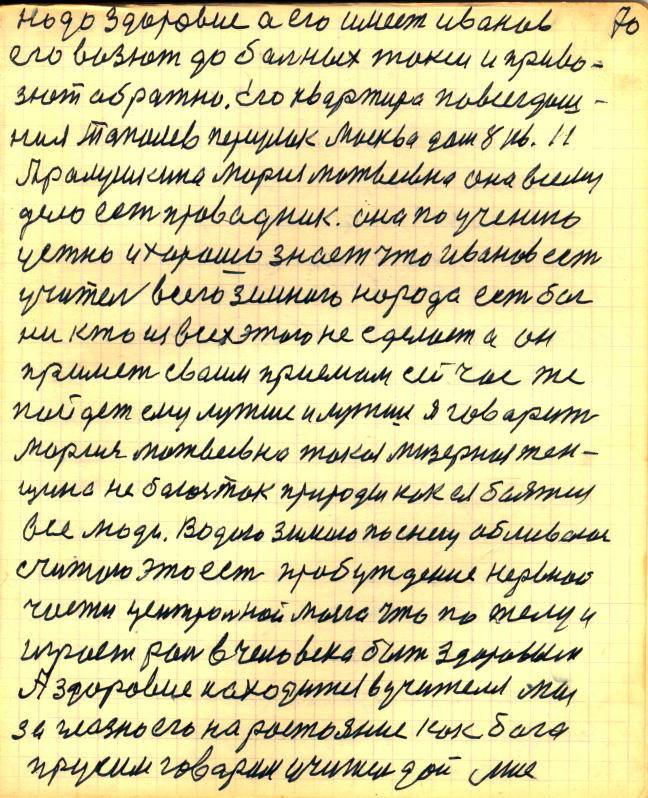 надо здоровие а его имеет иванов 70
его возют до болных токси и приво-
зют обратно. Его квартира повседощ-
ная переулак Москва дом 8 кв. 11
Мария матвеевна она всему
дело ест провадник. она по учению
устно и хорошо знает что иванов ест
учител всего земного народа ест бог
ни кто из всех этого не сделает а он
примет сваим приемам сей час же
пойдет ему лутше и лутше я говарит
Мария матвеевна такая мизерная жен-
щина не боюс так природы как ея баятся
все люди. Водою зимою по снегу обливаюс
считаю это ест пробуждение нервной
части централной мозга что по телу и
играет рол в человека быт здоровым
А здоровие находится в учителя мы
за глазно его на ростояние как бога
просим говарим учител дай мне